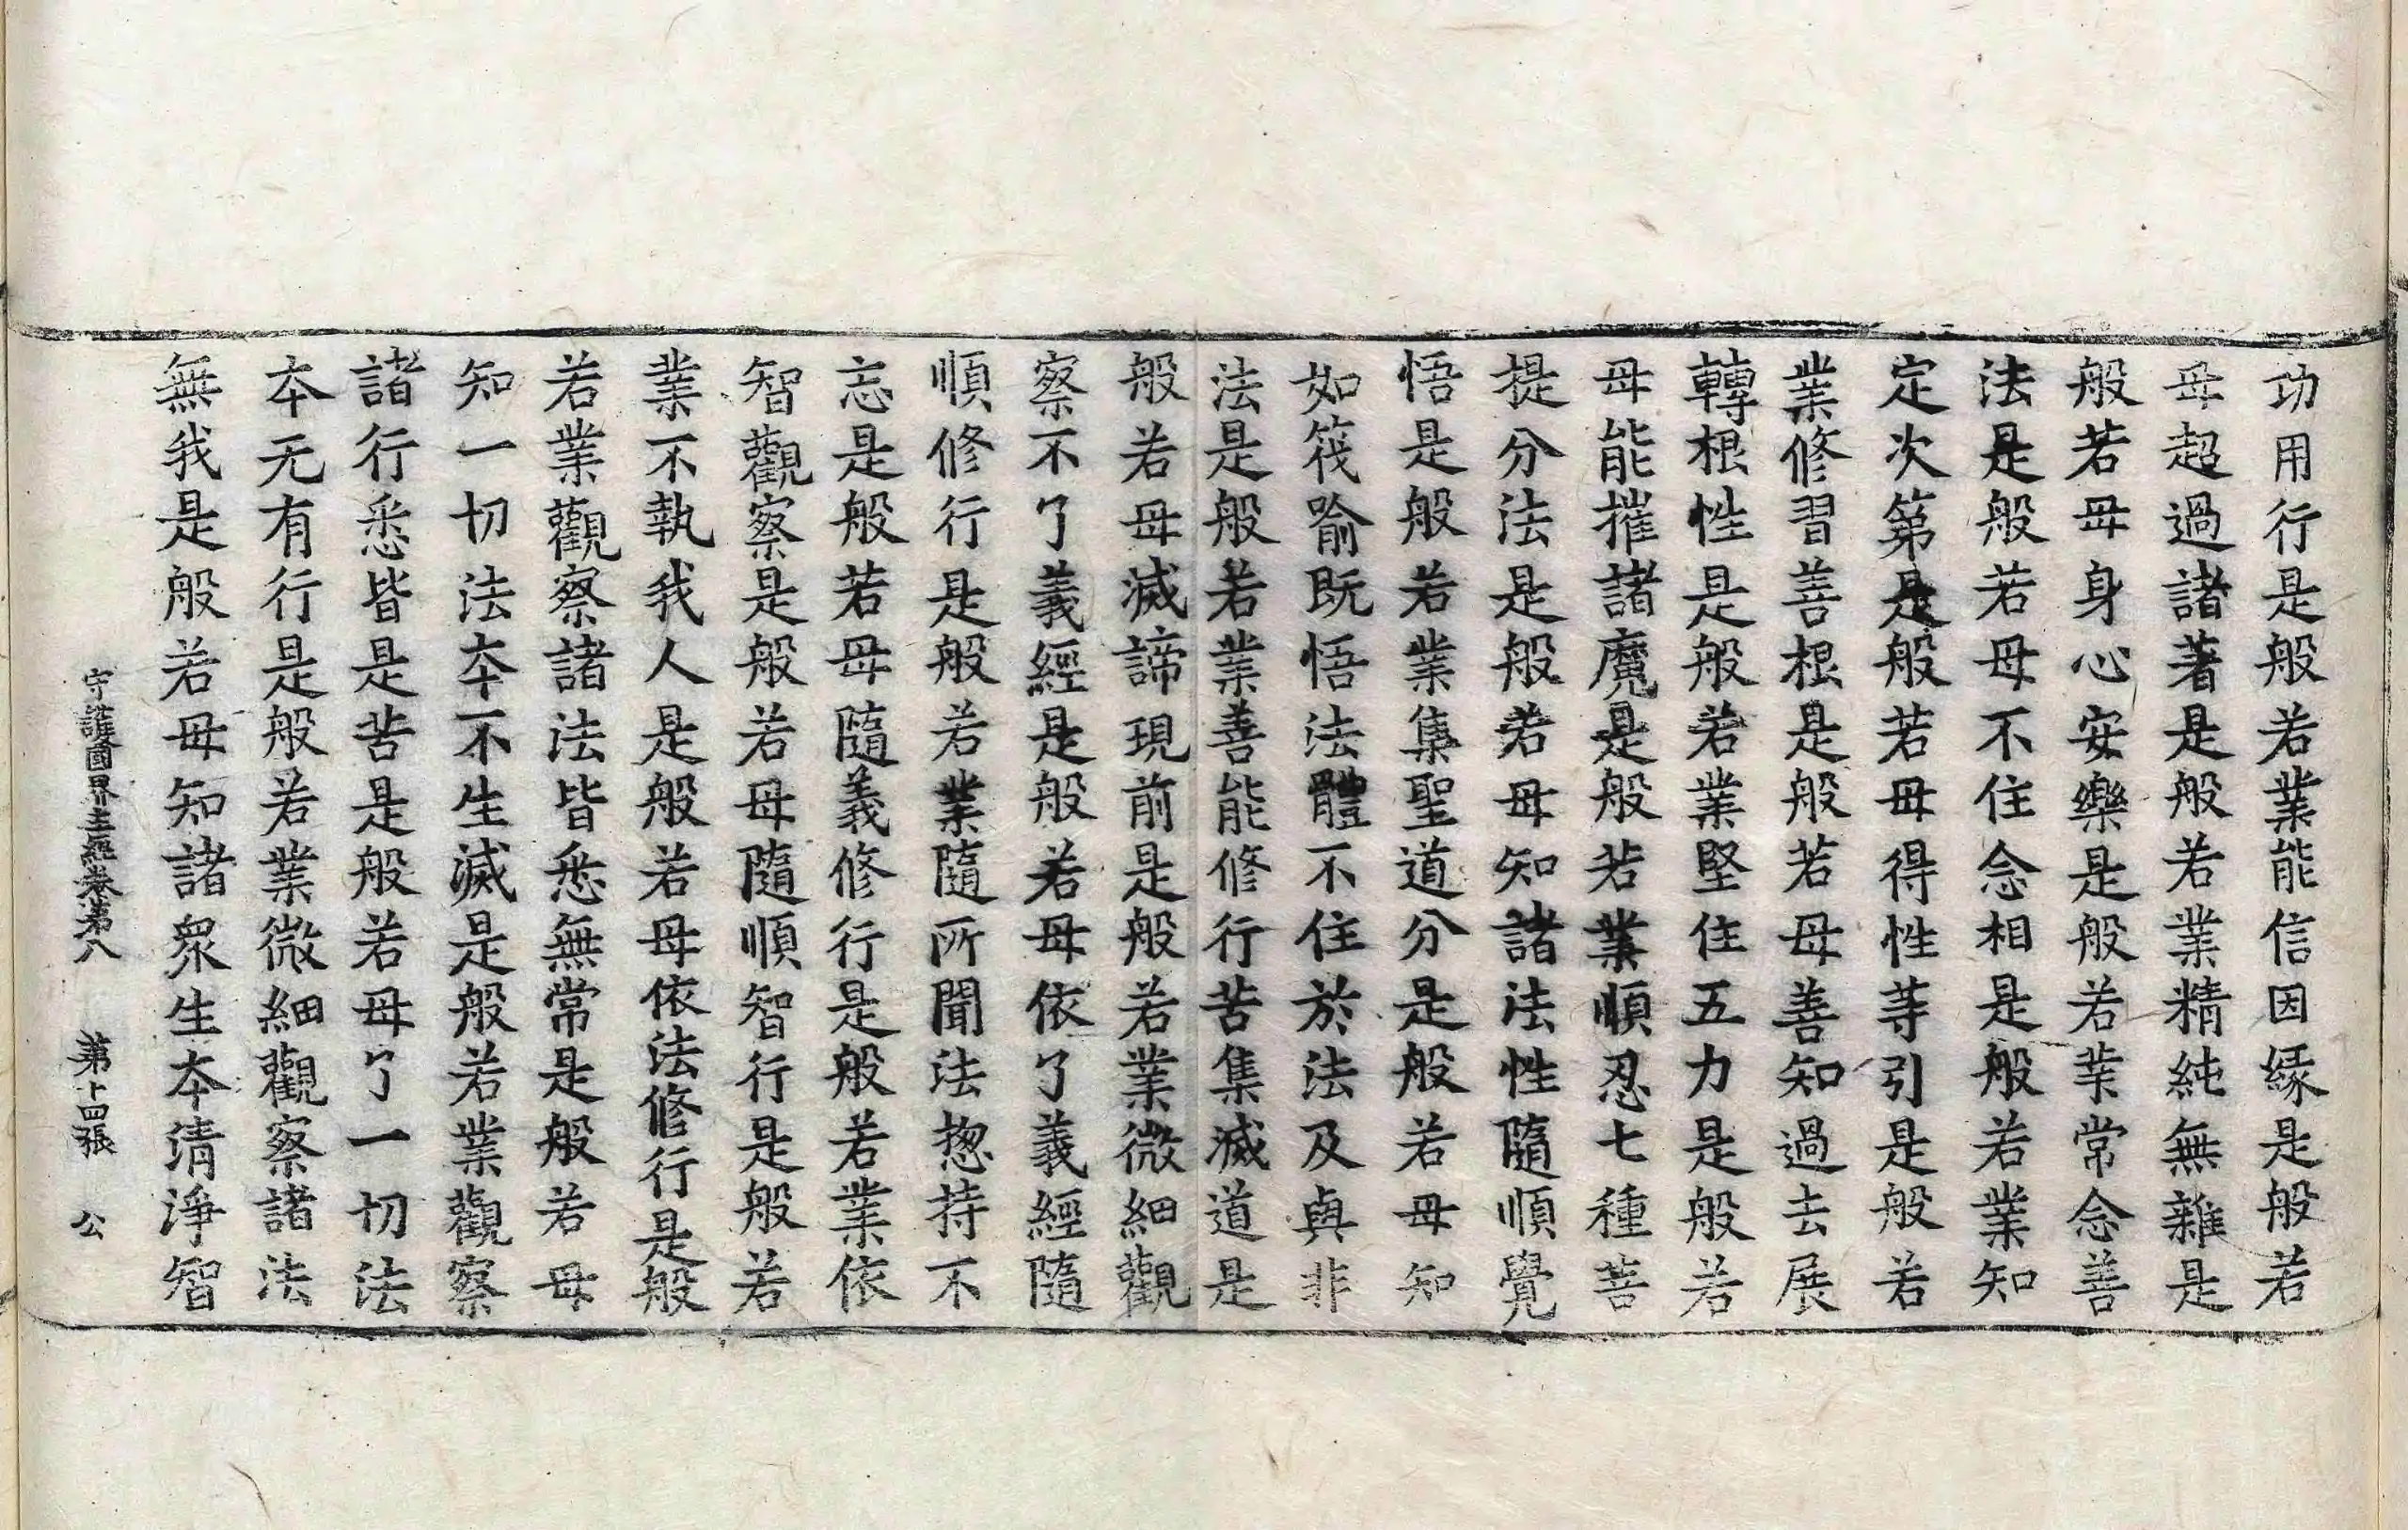 功用行是般若業能信因緣是般若
母超過諸著是般若業精純無雜是
般若母身心安樂是般若業常念善
法是般若母不住念相是般若業知
定次第是般若母得性等引是般若
業修習善根是般若母善知過去展
轉根性是般若業堅住五力是般若
母能摧諸魔是般若業順忍七種菩
提分法是般若母知諸法性隨順覺
悟是般若業集聖道分是般若母知
如筏喻既悟法體不住於法及與非
法是般若業善能修行苦集滅道是
般若母滅諦現前是般若業微細觀
察不了義經是般若母依了義經隨
順修行是般若業隨所聞法惣持不
忘是般若母隨義修行是般若業依
智觀察是般若母隨順智行是般若
業不執我人是般若母依法修行是般
若業觀察諸法皆悉無常是般若母
知一切法本不生滅是般若業觀察
諸行悉皆是苦是般若母了一切法
本无有行是般若業微細觀察諸法
無我是般若母知諸眾生本清淨智
守護國界主經卷第八 第十四張 公